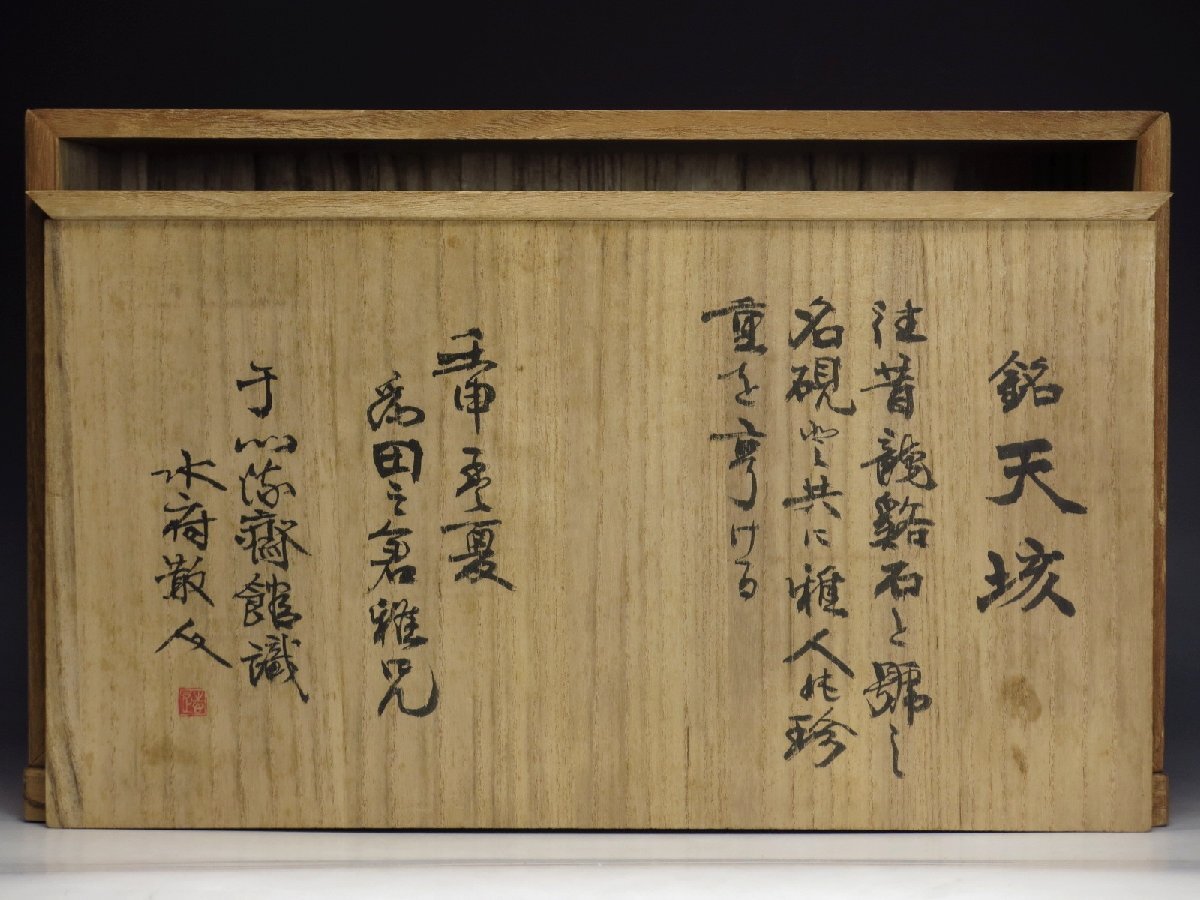 銘天垓
往昔龍谿石と號し
名硯と共に雅人の珍
重を享ける
壬申孟夏
為田之倉雅兄
于心齋館識
水府散人